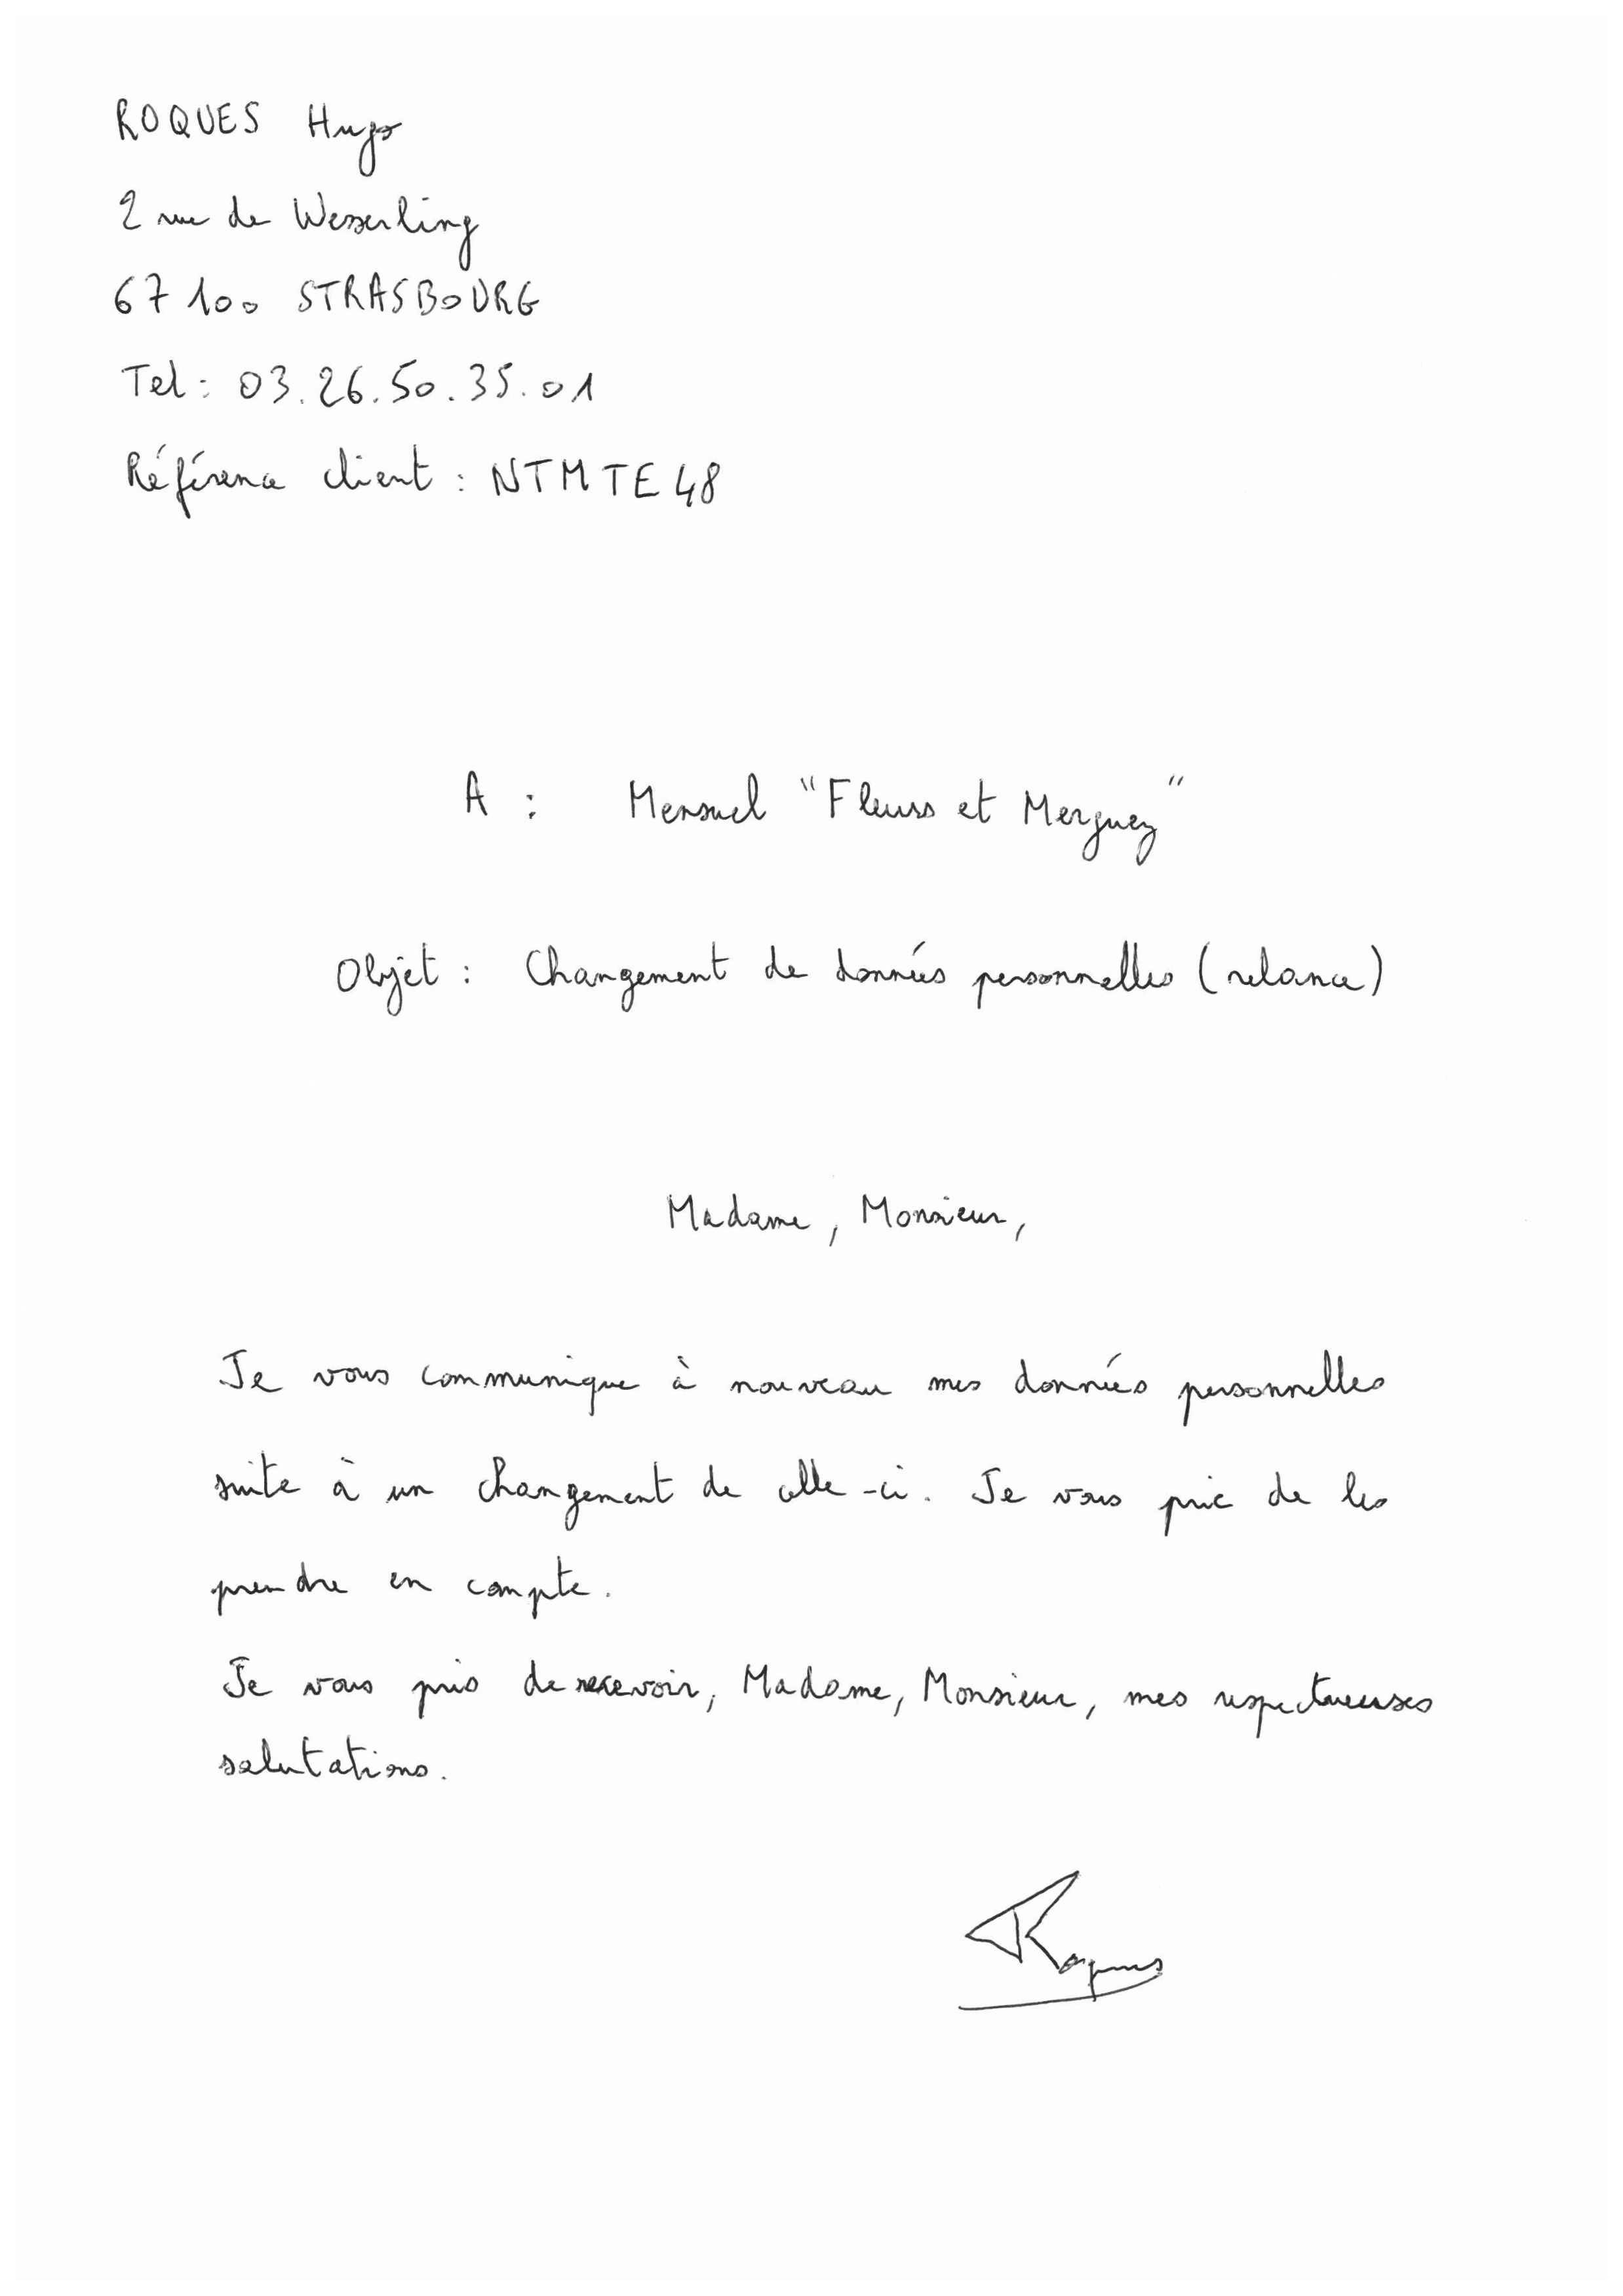 ROQUES Hugo
2 rue de Wesserling
67100 STRASBOURG
Tel : 03.26.50.35.01
Référence client : NTMTE48
A : Mensuel "Fleurs et Merguez"
Objet : Changement de données personnelles (relance)
Madame, Monsieur,
Je vous communique à nouveau mes données personnelles
suite à un changement de celle-ci. Je vous prie de les
prendre en compte.
Je vous pris de recevoir, Madame, Monsieur, mes respectueuses
salutations.
Roques